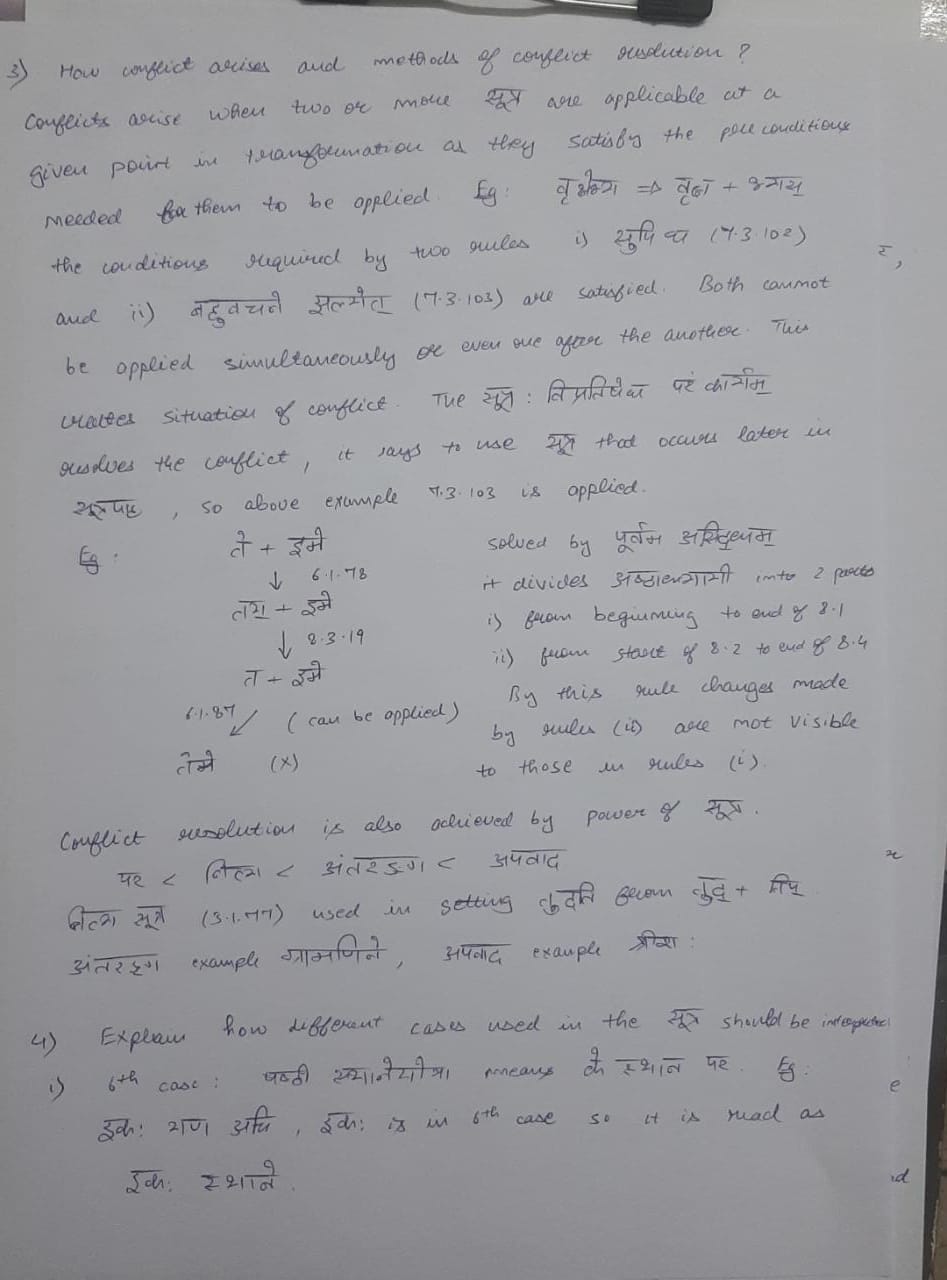 3) How conflict arises and methods of conflict resolution ?
Conflicts arise when two or more सूत्र are applicable at a
given point in transformation as they satisfy the pre conditions
needed for them to be applied. Eg: वृक्षेभ्य => वृक्ष + भ्यस्
the conditions required by two rules i) सुपि च (7.3.102)
and ii) बहुवचने झल्येत् (7.3.103) are satisfied. Both cannot
be applied simultaneously or even one after the another. This
creates situation of conflict. The सूत्र : विप्रतिषेध परं कार्यम्
resolves the conflict, it says to use सूत्र that occurs later in
सूत्रपाठ , so above example 7.3.103 is applied.
Eg :
ते + इमे
↓ 6.1.78
तय + इमे
↓ 8.3.19
त + इमे
6.1.87 ↙ (can be applied)
तेमे (x)
solved by पूर्वत्र असिद्धम्
it divides अष्टाध्यायी into 2 parts
i) from beginning to end of 8.1
ii) from start of 8.2 to end of 8.4
By this rule changes made
by rules (ii) are not visible
to those in rules (i).
Conflict resolution is also achieved by power of सूत्र.
पर < नित्य < अंतरङ्ग < अपवाद
नित्य सूत्र (3.1.77) used in setting तुदति from तुद् + तिप्
अंतरङ्ग example ग्रामणिने, अपवाद example श्रीश :
4) Explain how different cases used in the सूत्र should be interpreted
i) 6th case : षष्ठी स्थानेयोगा means के स्थान पर. Eg:
इकः यण अचि , इकः is in 6th case so it is read as
इकः स्थाने.